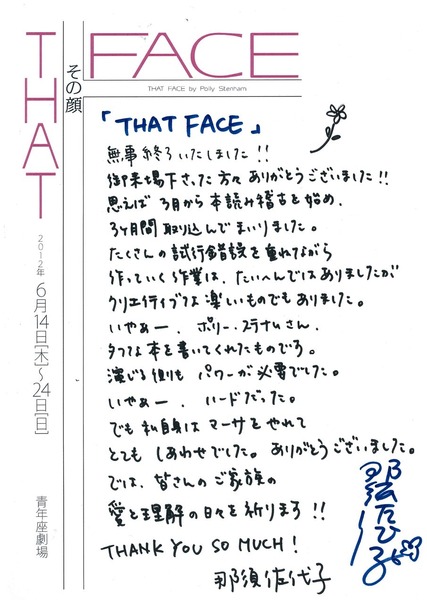 THAT FACE
その顔
THAT FACE by Polly Stenham
2012年 6月14日[木]～24日[日]
青年座劇場
「THAT FACE」
無事終了いたしました!!
御来場下さった方々ありがとうございました!!
思えば3月から本読み稽古を始め、
3ヶ月間取り込んでまいりました。
たくさんの試行錯誤を重ねながら
作っていく作業は、たいへんではありましたが
クリエイティブな楽しいものでもありました。
いやぁー、ポリー・ステナムさん、
タフな本を書いてくれたものです。
演じる側もパワーが必要でした。
いやぁー、ハードだった。
でも私自身はマーサをやれて
とてもしあわせでした。ありがとうございました。
では、皆さんのご家族の
愛と理解の日々を祈ります!!
THANK YOU SO MUCH!
那須佐代子